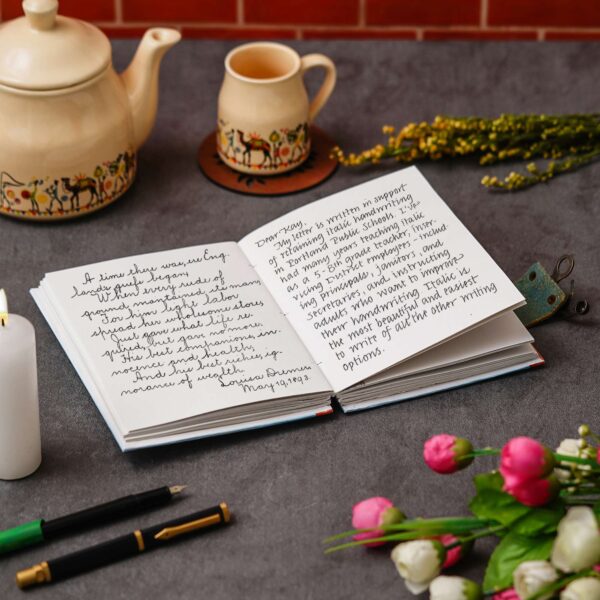 A time there was, ere Eng-
land's griefs began,
When every rood of
ground maintained its man;
For him light labor
spread her wholesome store,
Just gave what life re-
quired, but gave no more.
His best companions, in-
nocence and health;
And his best riches, ig-
norance of wealth.
Louisa
May 19, 1893.
Dear Kay,
My letter is written in support
of retaining italic handwriting
in Portland Public Schools. I've
had many years teaching italic
as a 5-8th grade teacher, inser-
vicing District employees - includ-
ing principals, janitors, and
secretaries, and instructing
adults who want to improve
their handwriting. Italic is
the most beautiful and easiest
to write of all the other writing
options.